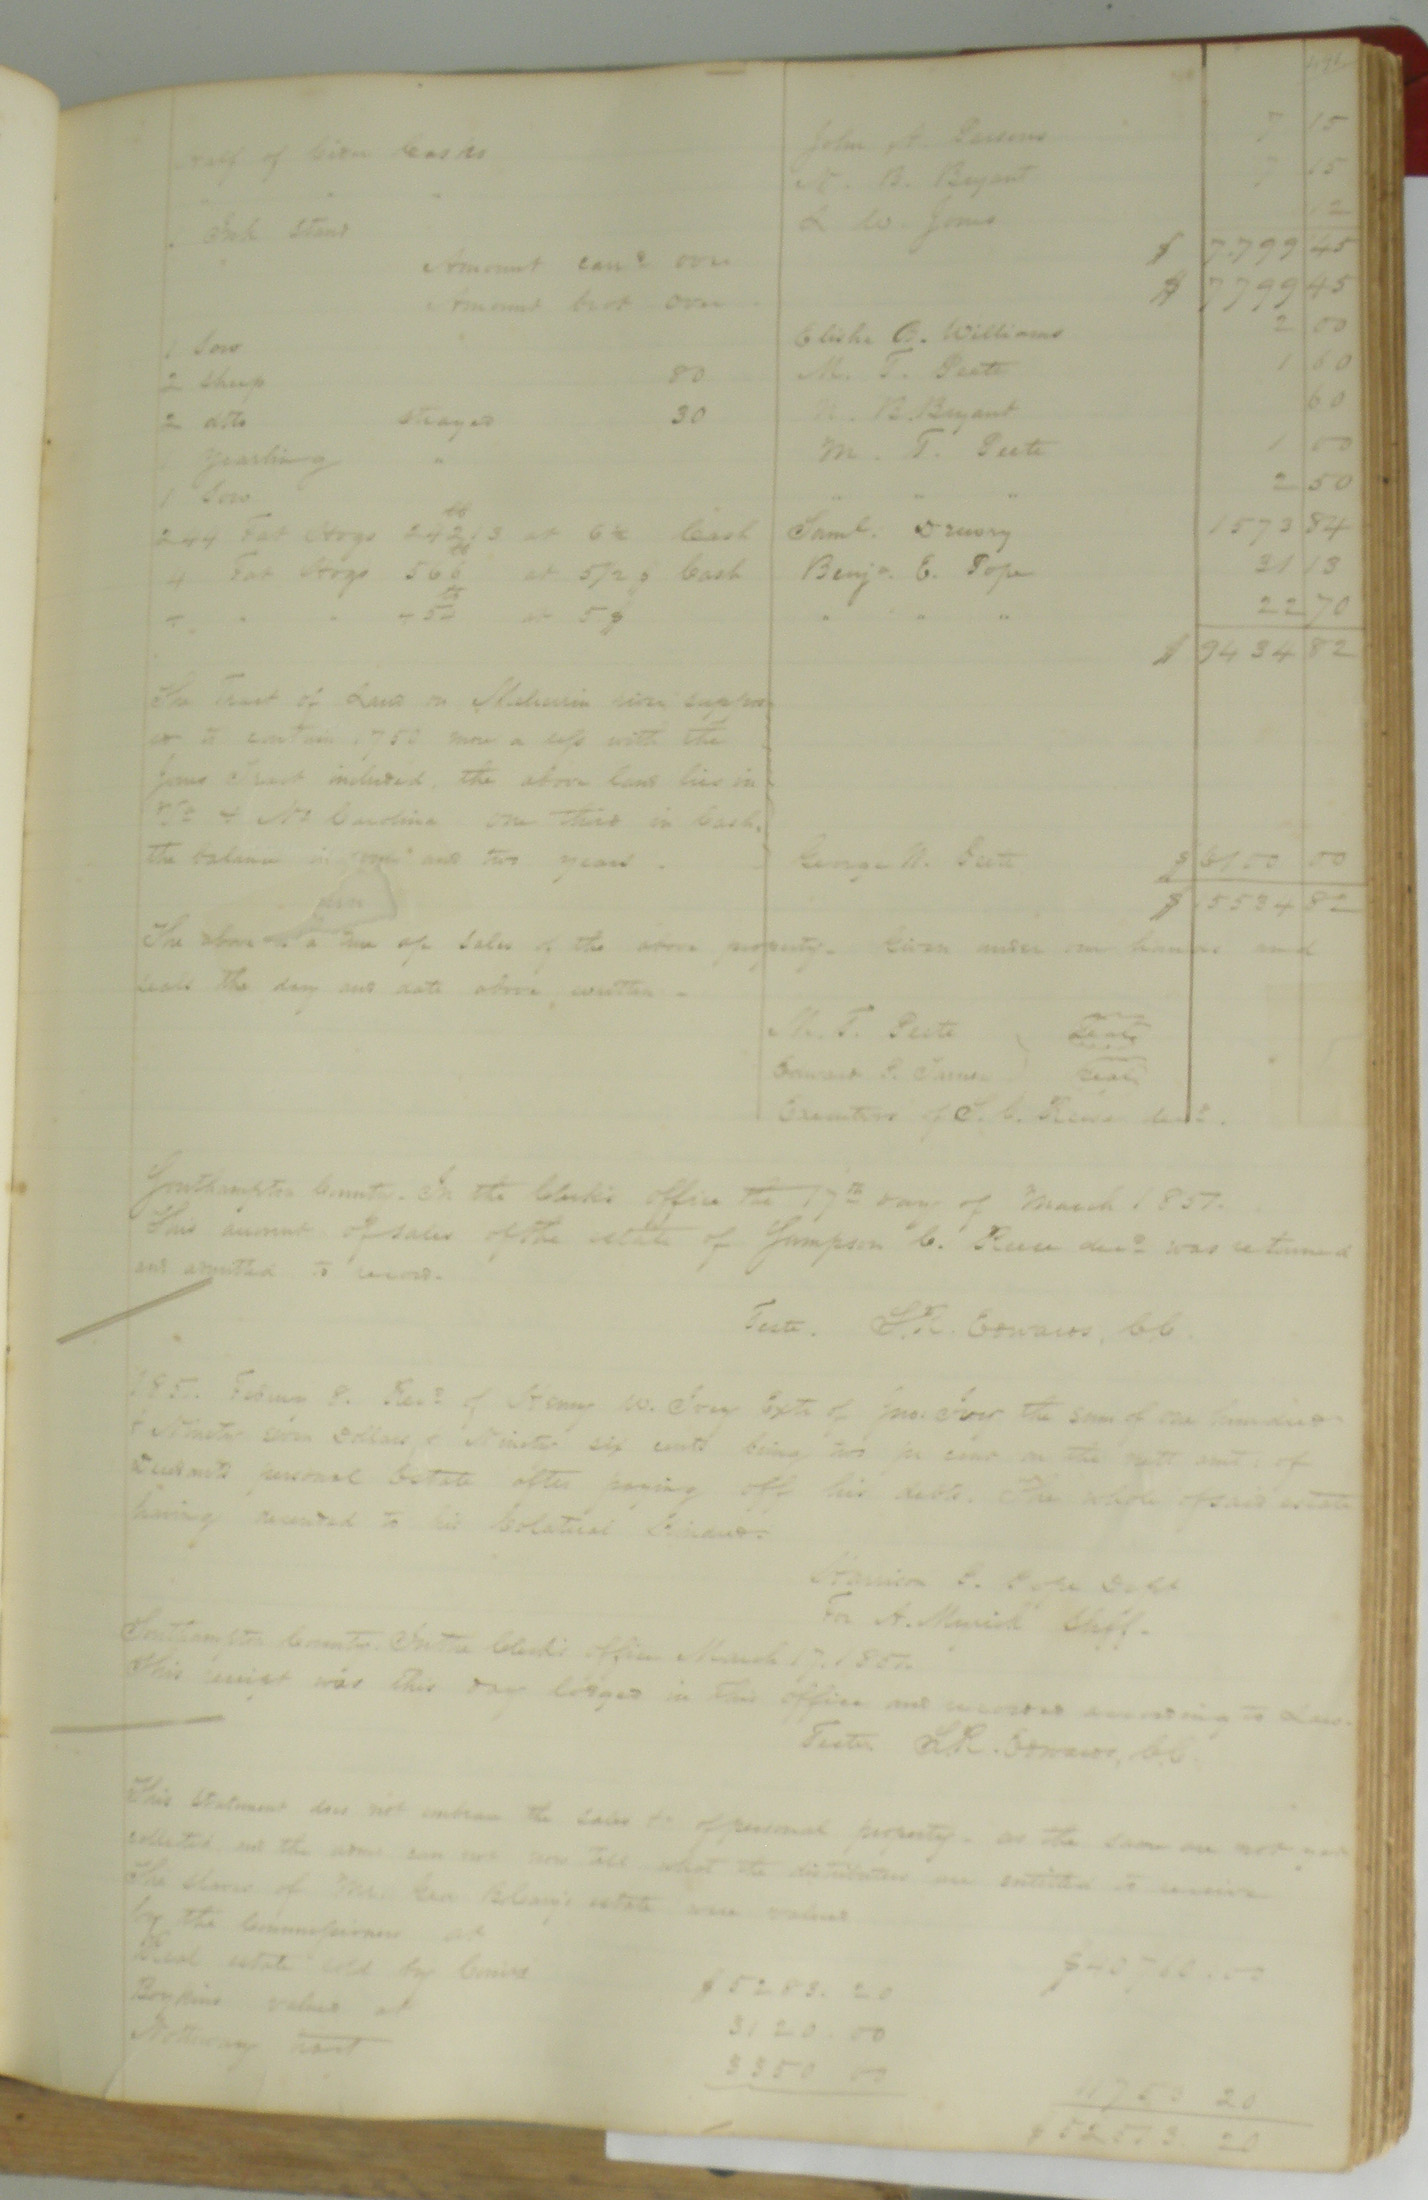 Half of Cider Casks John A. Parsons 7 15
" " N. B. Bryant 7 15
1 Ink Stand L W. Jones 12
Amount car.d over $ 7.799 45
Amount brot over $ 7799 45
1 Sow Elisha B. Williams 2 00
2 Sheep 80 M. T. Peete 1 60
2 ditto Strayed 30 N. B. Bryant 60
1 Yearling " M. T. Peete 1 00
1 Sow " " " 2 50
244 Fat Hogs 24213 lb at 6½ Cash Saml. Drewry 1573 84
4 Fat Hogs 566 lb at 5½ ¢ Cash Benja. E. Pope 31 13
" " 454 lb at 5¢ " " " 22 70
$ 9434 82
The Tract of Land on Meherrin river suppos
ed to contain 1750 more or less with the
Jones Tract included, the above land lies in
Va & No Carolina one third in Cash,
the balance in one and two years. George W. Peete $ 6100 00
$ 15534 82
The above is a true a/c Sales of the above property. Given under our hands and
seals the day and date above written -
M. T. Peete Seal
Edward P. Turner Seal
Executors of S. C. Reese decd.
Southampton County. In the Clerk's office the 17th day of March 1851.
This account of sales of the estate of Sampson C. Reese decd was returned
and admitted to record.
Teste. L. R. Edwards, C.C.
1851. February 8. Recd of Henry W. Ivey Extr of Jno. Ivey the sum of one hundred
& Ninety Dollars & Ninety six cents being two pr cent on the nett amt. of
Decedants personal Estate after paying off his debts. The whole of said estate
having decended to his Colateral Kindred.
Harrison P. Pope Dept
For A. Myrick Shff.
Southampton County. In the Clerk's office March 17. 1851.
This receipt was this day lodged in this office and recorded according to Law.
Teste L.R. Edwards, C.C.
This statement does not embrace the sales &c of personal property - as the same are not yet
collected and the admr can not now tell what the distributees are entitled to receive
The slaves of Mr. Geo estate were valued
by the Commissioners at $40760.00
Real estate sold by $5283.20
Boykins valued at 3120.00
Nottoway tract 3350 00 11753 20
$52513.20